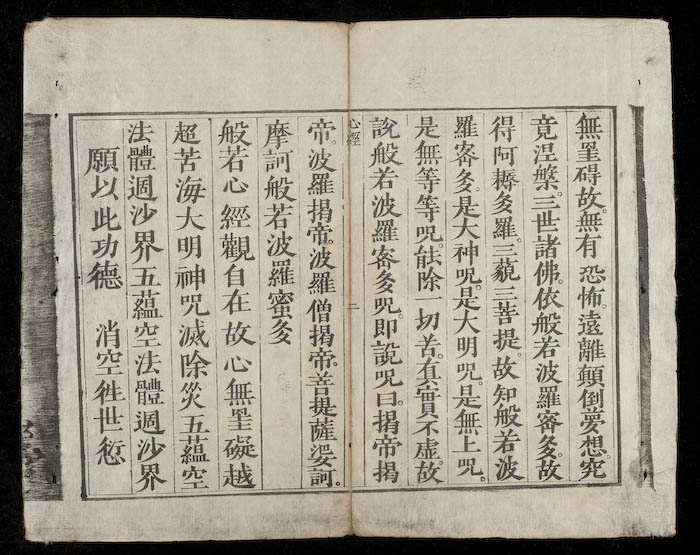 無罣碍故。無有恐怖。遠離顛倒夢想。究
竟涅槃。三世諸佛。依般若波羅蜜多。故
得阿耨多羅。三藐三菩提。故知般若波
羅蜜多。是大神咒。是大明咒。是無上咒。
是無等等咒。能除一切苦。真實不虛。故
說般若波羅蜜多咒。即說咒曰。揭帝揭
心經
二
帝。波羅揭帝。波羅僧揭帝。菩提薩婆訶。
摩訶般若波羅蜜多
般若心經觀自在故心無罣礙越
超苦海大明神咒滅除災五蘊空
法體週沙界五蘊空法體週沙界
願以此功德 消空徃世愆